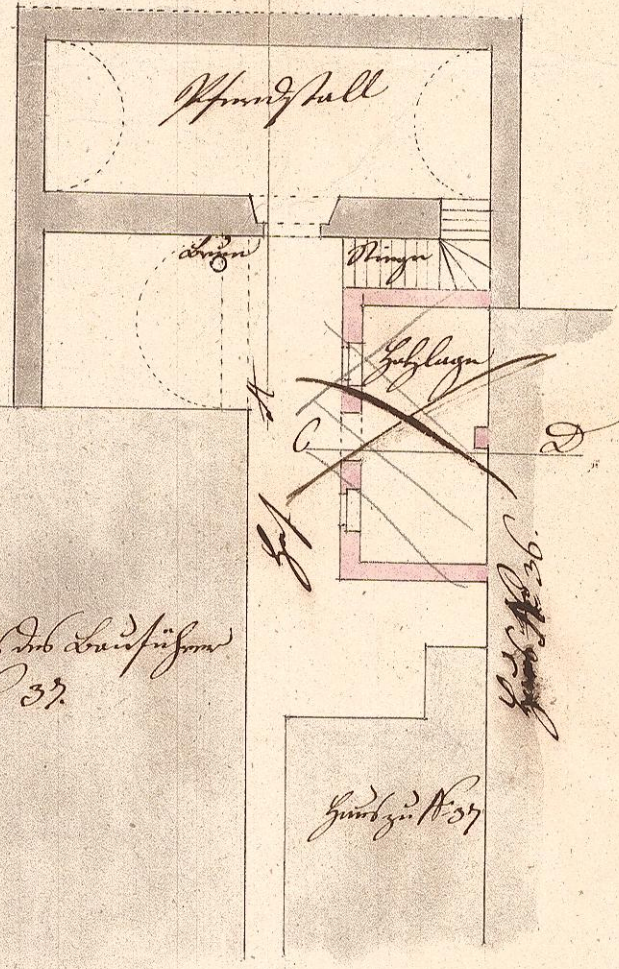 Pferdstall
Brun
Stiege
Holzlage
A
C
D
Hof
des Bauführer
37.
Haus No 36.
Haus zu No 37